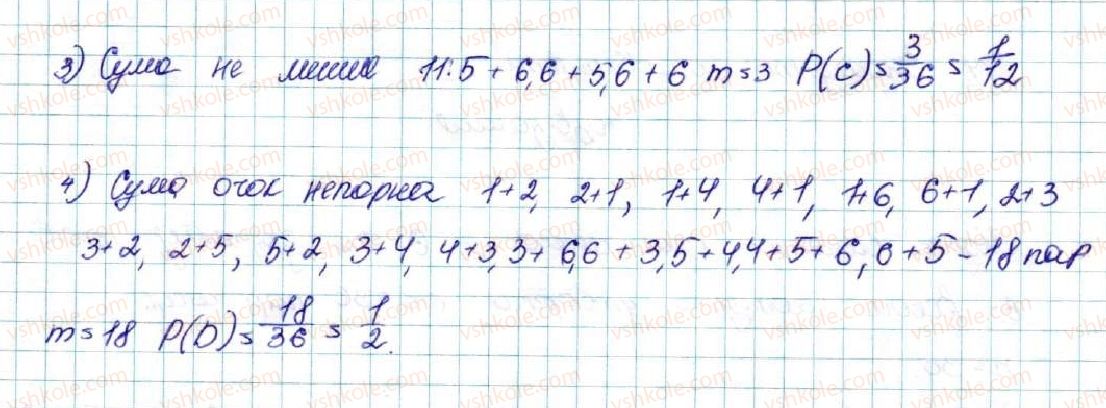 3) Сума не менша 11: 5 + 6, 6 + 5, 6 + 6 m = 3 P(C) = 3/36 = 1/12
4) Сума очок непарна 1+2, 2+1, 1+4, 4+1, 1+6, 6+1, 2+3
3+2, 2+5, 5+2, 3+4, 4+3, 3+6, 6+3, 5+4, 4+5+6, 6+5 - 18 пар
m = 18 P(D) = 18/36 = 1/2.